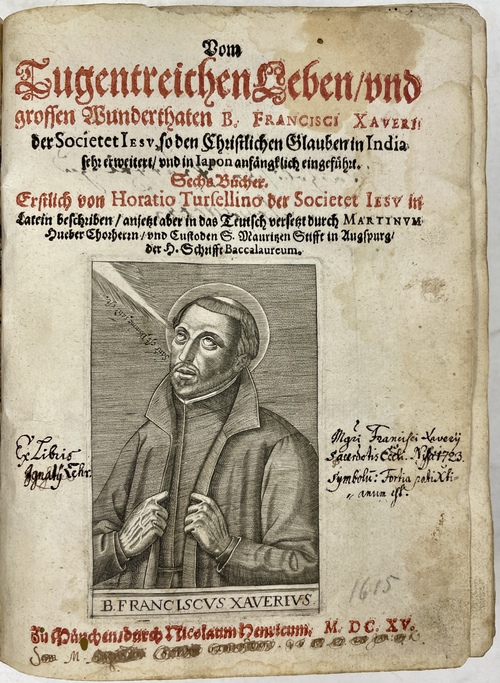 Vom
Tugentreichen Leben/vnd
grossen Wunderthaten B. FRANCISCI XAVERII
der Societet IESV, so den Christlichen Glauben in India
sehr erweitert/ vnd in Iapon anfängklich eingeführt.
Sechs Bücher.
Erstlich von Horatio Tursellino der Societet IESV in
Latein beschriben/ anjetzt aber in das Teutsch versetzt durch MARTINVM
Hueber Chorherrn/ vnd Custoden S. Mauritzen Stifft in Augspurg/
der H. Schrifft Baccalaureum.
Ex Libris
Ignatÿ
Mgri Francisci Xaverÿ
Sacerdotis 1723.
Symbolū: Fortia pati Xti-
anum est.
B. FRANCISCVS XAVERIVS
1615
Zu München/durch Nicolaum Henricum. M. DC. XV.